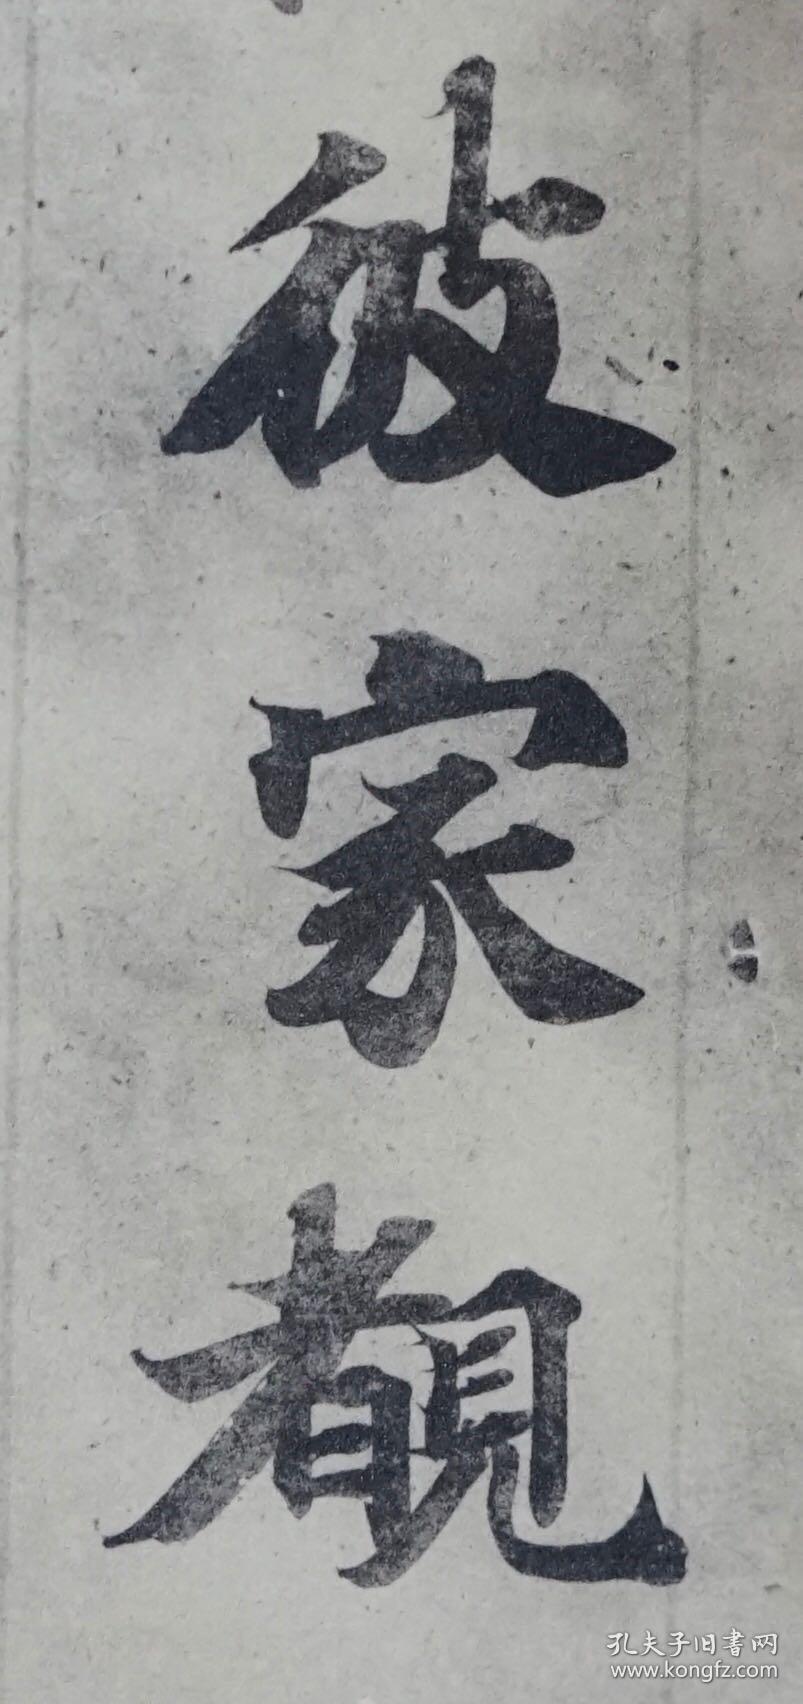 彼家覩
孔夫子旧書网
www.kongfz.com